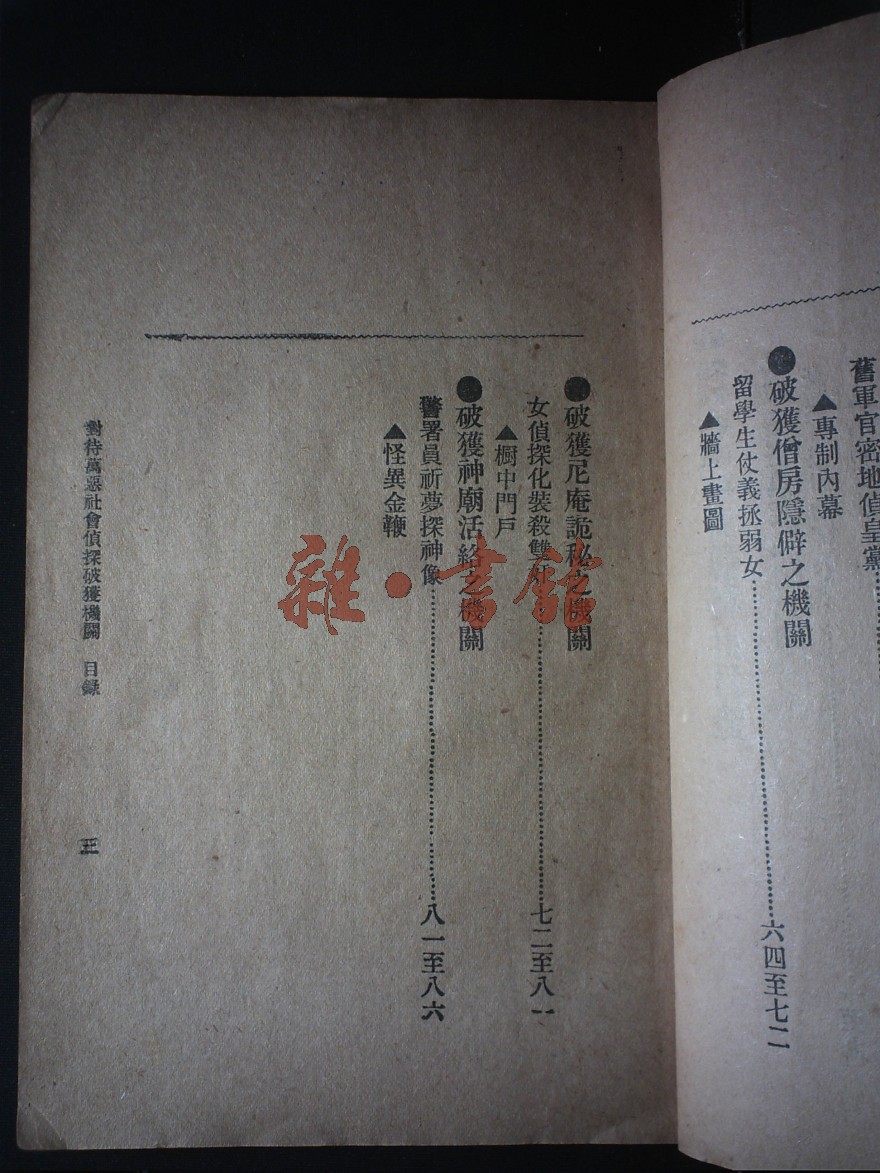 舊軍官密地偵皇黨
▲專制內幕
●破獲僧房隱僻之機關
留學生仗義拯弱女…………六四至七二
▲牆上畫圖
●破獲尼庵詭秘之機關
女偵探化裝殺雙…………七二至八一
▲櫥中門戶
●破獲神廟活絡之機關
警署員祈夢探神像…………八一至八六
▲怪異金鞭
對待萬惡社會偵探破獲機關 目錄 三
雜·書館